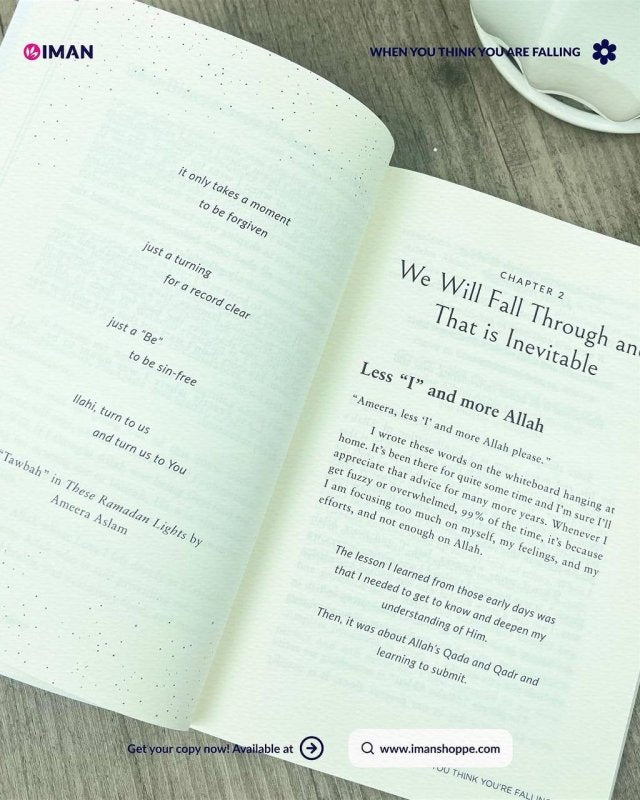 IMAN
WHEN YOU THINK YOU ARE FALLING
it only takes a moment
to be forgiven
just a turning
for a record clear
just a "Be"
to be sin-free
Ilahi, turn to us
and turn us to You
"Tawbah" in These Ramadan Lights by
Ameera Aslam
CHAPTER 2
We Will Fall Through and
That is Inevitable
Less "I" and more Allah
"Ameera, less 'I' and more Allah please."
I wrote these words on the whiteboard hanging at
home. It's been there for quite some time and I'm sure I'll
appreciate that advice for many more years. Whenever I
get fuzzy or overwhelmed, 99% of the time, it's because
I am focusing too much on myself, my feelings, and my
efforts, and not enough on Allah.
The lesson I learned from those early days was
that I needed to get to know and deepen my
understanding of Him.
Then, it was about Allah's Qada and Qadr and
learning to submit.
YOU THINK YOU'RE FALLING
Get your copy now! Available at
www.imanshoppe.com